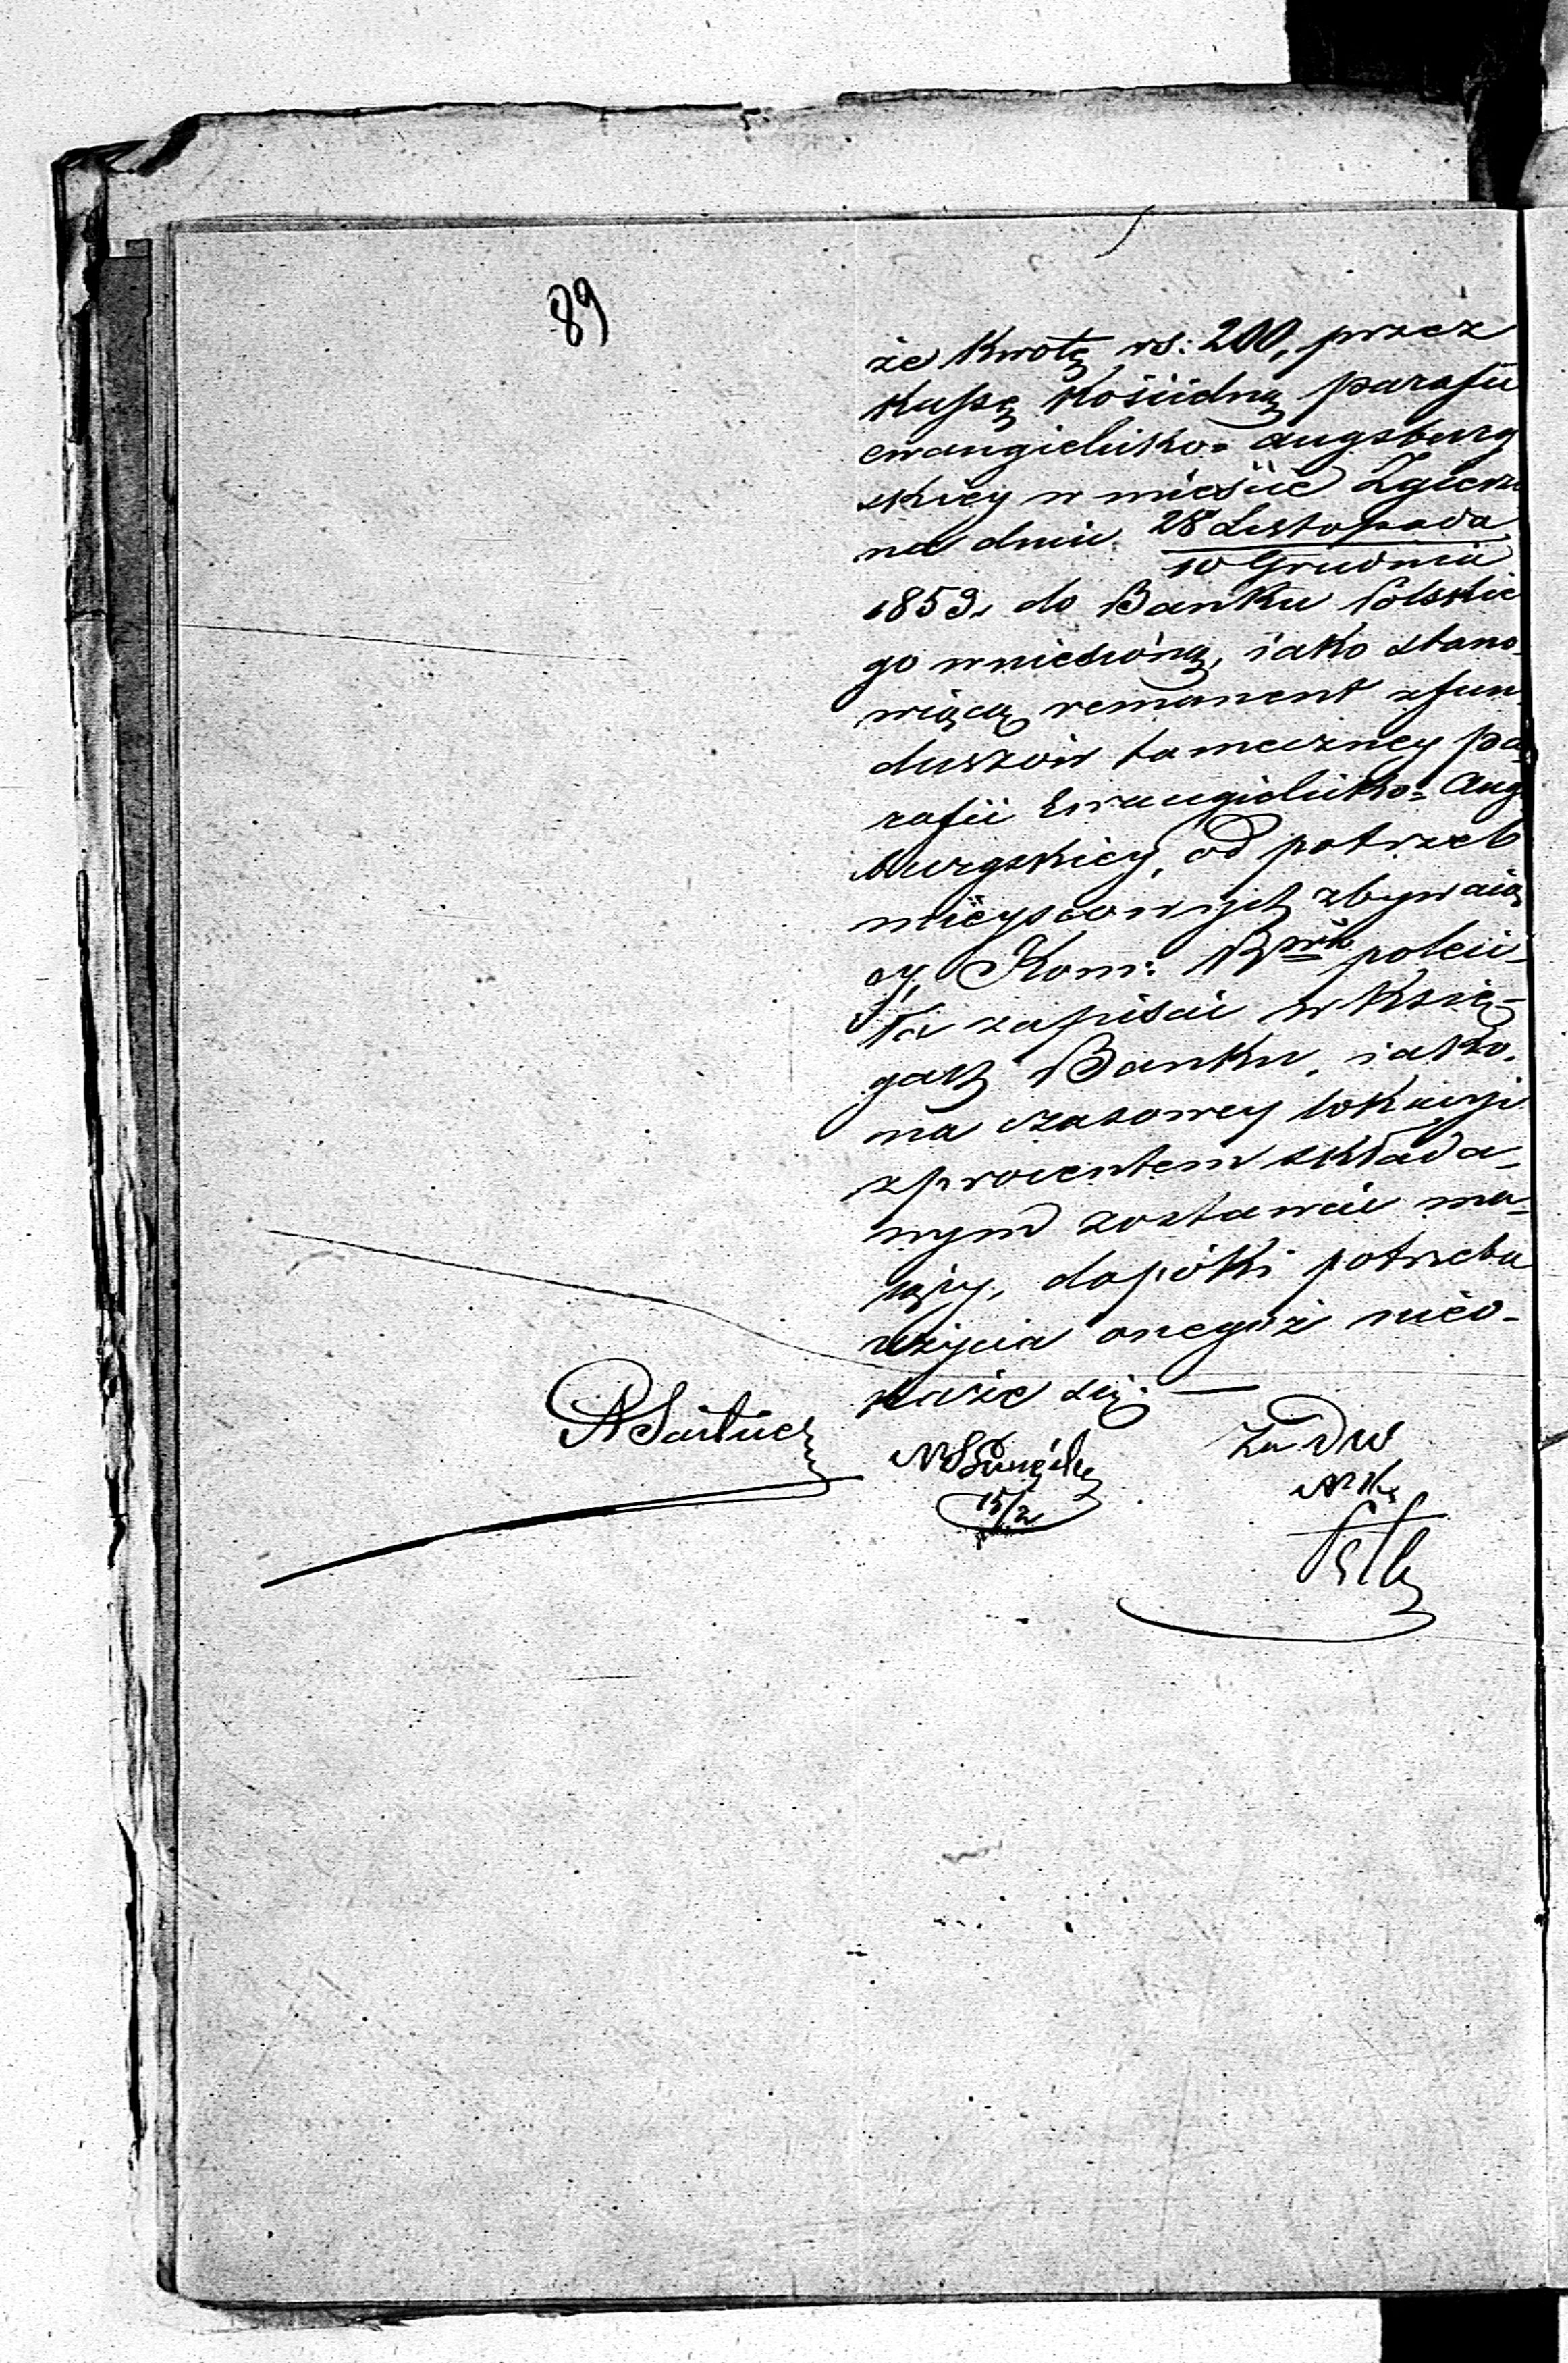 89
że Kwotę rs: 200, przez
Kassę Kościelną parafii
ewangielicko= augsburg
skiey w mieście Zgierzu
na dniu 28 Listopada
10 Grudnia
1859. do Banku Polskie
go wniesioną, iako stano-
wiącą remanent z fun
duszów tameczney pa
rafii Ewangielicko= Aug
burgskiey, od potrzeb
mieyscowych zbywaią
cy, Kom: poleci-
ła zapisać w Księ-
gach Banku, iako
na czasowey lokacyi
z procentem składa-
nym zostawać ma-
jący, dopóki potrzeba
użycia onegoż nieo-
każe się. —
15/2